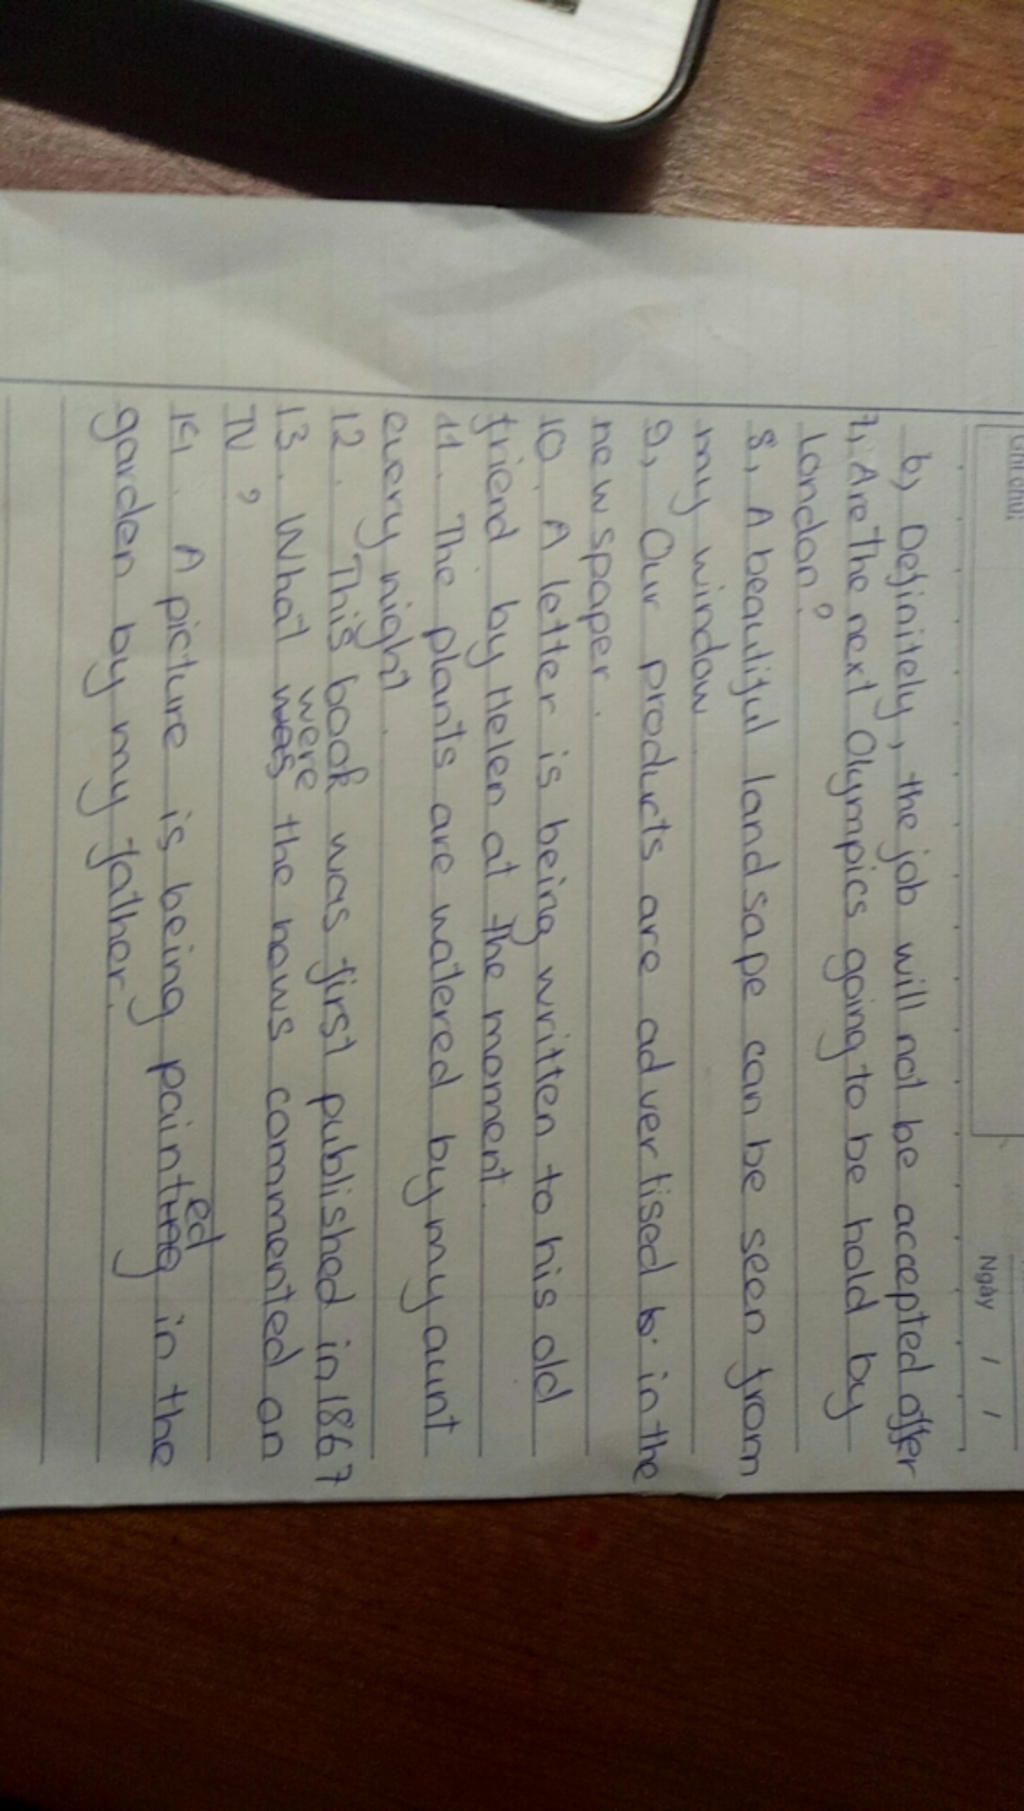 Ghi chú:
Ngày / /
6, Definitely, the job will not be accepted offer
7, Are the next Olympics going to be hold by
London?
8, A beautiful landsape can be seen from
my window.
9, Our products are advertised in the
newspaper.
10. A letter is being written to his old
friend by Helen at the moment.
11. The plants are watered by my aunt
every night.
12. This book was first published in 1867
13. What were the news commented on
TV?
14. A picture is being painted in the
garden by my father.